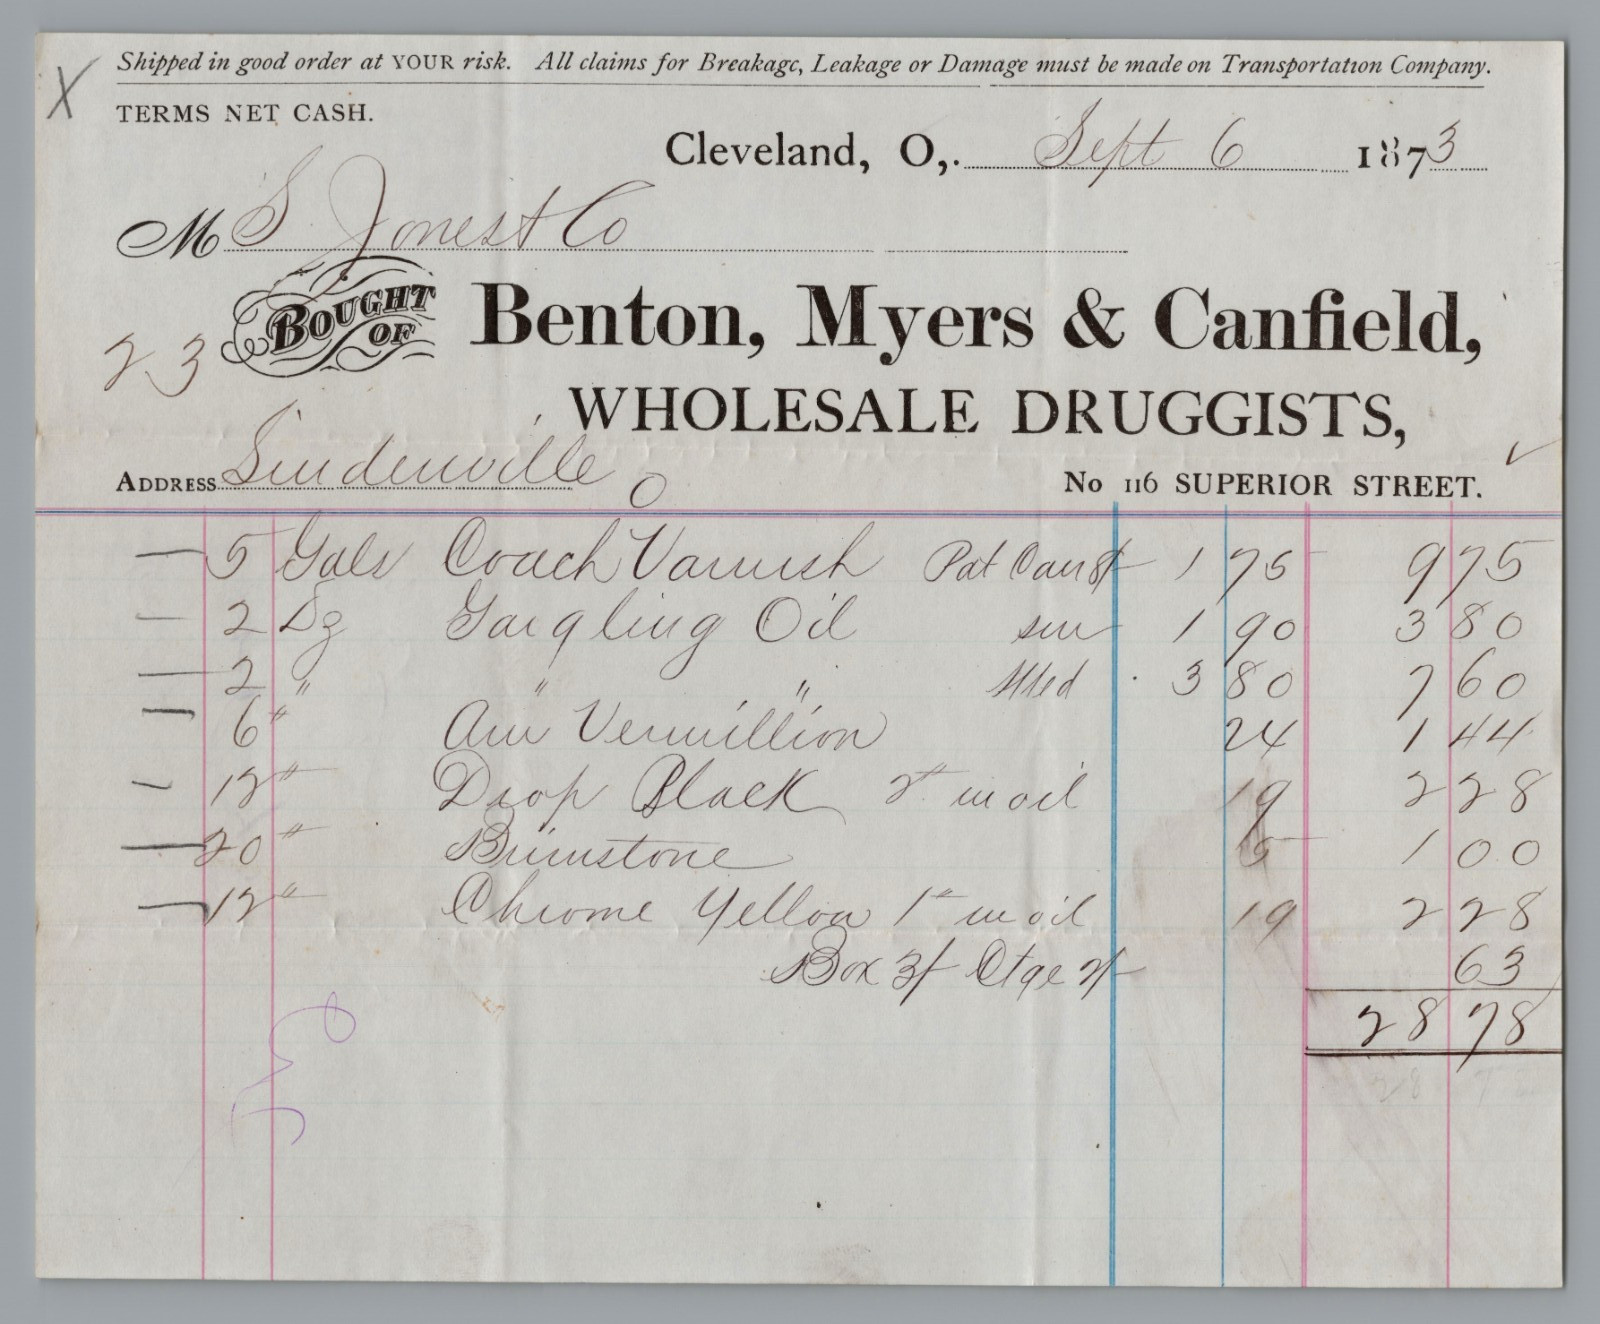 Shipped in good order at YOUR risk. All claims for Breakage, Leakage or Damage must be made on Transportation Company.
X
TERMS NET CASH.
Cleveland, O,. Sept 6 1873
M S. Jones & Co
BOUGHT OF
Benton, Myers & Canfield,
23
WHOLESALE DRUGGISTS,
ADDRESS Lindenville O
No 116 SUPERIOR STREET.
5 Gals Coach Varnish Pat Can 1 75 9 75
2 Dz Gargling Oil sm 1 90 3 80
2 " " " Med 3 80 7 60
6 " Am Vermillion 24 1 44
12 " Drop Black 2# in oil 19 2 28
20 " Brimstone 5 1 00
12 " Chrome Yellow 1# in oil 19 2 28
Box 3/ Ctge 2/ 63
28 78